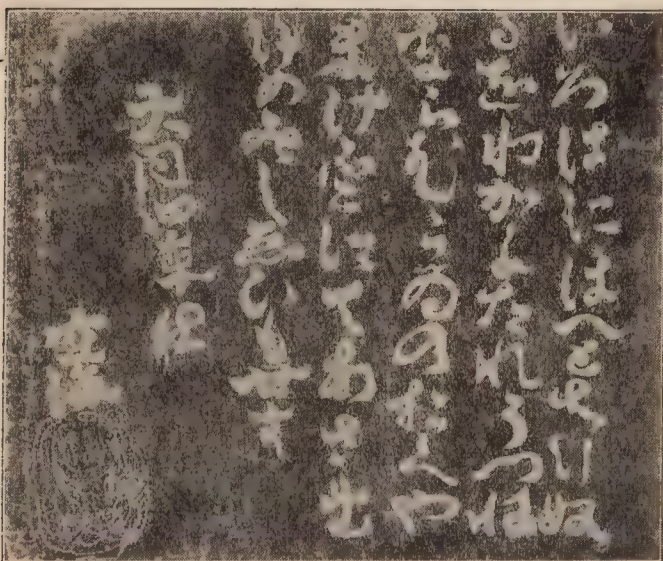 いろはにほへとちりぬ
るをわかよたれそつね
ならむうゐのおくや
まけふこえてあさき
ゆめみしゑひもせす
空海